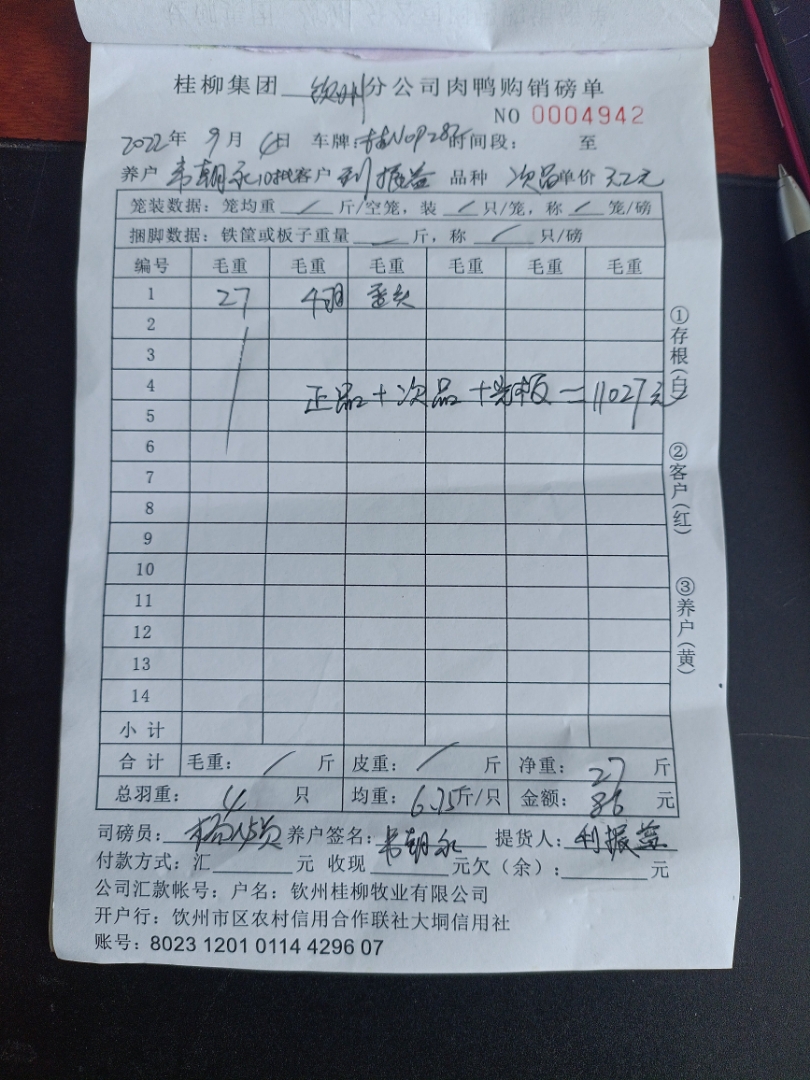 桂柳集团 钦州 分公司肉鸭购销磅单
NO 0004942
2022年 9月 4日 车牌: 时间段： 至
养户 韦朝永10批 客户 利振益 品种 次品 单价 3.2元
笼装数据：笼均重 / 斤/空笼，装 / 只/笼，称 / 笼/磅
捆脚数据：铁筐或板子重量 斤，称 / 只/磅
编号 毛重 毛重 毛重 毛重 毛重 毛重
1 27 4羽 歪头
2
3
4 正品+次品+光板=11027元
5
6
7
8
9
10
11
12
13
14
小计
合计 毛重： / 斤 皮重： / 斤 净重： 27 斤
总羽重： 4 只 均重： 6.75斤/只 金额： 86 元
司磅员： 养户签名： 韦朝永 提货人： 利振益
付款方式：汇 元 收现 元欠（余）： 元
公司汇款帐号：户名：钦州桂柳牧业有限公司
开户行：钦州市区农村信用合作联社大垌信用社
账号：8023 1201 0114 4296 07
①存根(白)
②客户(红)
③养户(黄)